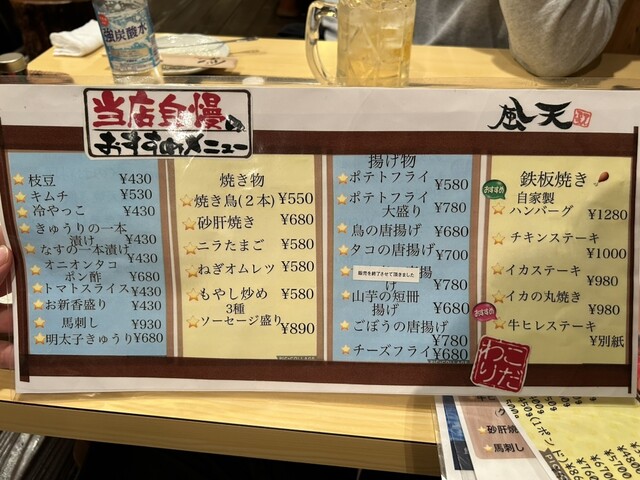 強炭酸水
当店自慢の
おすすめメニュー
風天
枝豆 ¥430
キムチ ¥530
冷やっこ ¥430
きゅうりの一本
漬け ¥430
なすの一本漬け ¥430
オニオンタコ
ポン酢 ¥680
トマトスライス ¥430
お新香盛り ¥430
馬刺し ¥930
明太子きゅうり ¥680
焼き物
焼き鳥(2本) ¥550
砂肝焼き ¥680
ニラたまご ¥580
ねぎオムレツ ¥580
もやし炒め ¥580
3種
ソーセージ盛り ¥890
揚げ物
ポテトフライ ¥580
ポテトフライ
大盛り ¥780
鳥の唐揚げ ¥680
タコの唐揚げ ¥700
販売を終了させて頂きました
揚
げ ¥780
山芋の短冊
揚げ ¥680
ごぼうの唐揚げ
¥780
チーズフライ ¥680
鉄板焼き
おすすめ
自家製
ハンバーグ ¥1280
チキンステーキ
¥1000
イカステーキ
¥980
イカの丸焼き
¥980
おすすめ
牛ヒレステーキ
¥別紙
こだわり
砂肝焼
馬刺し